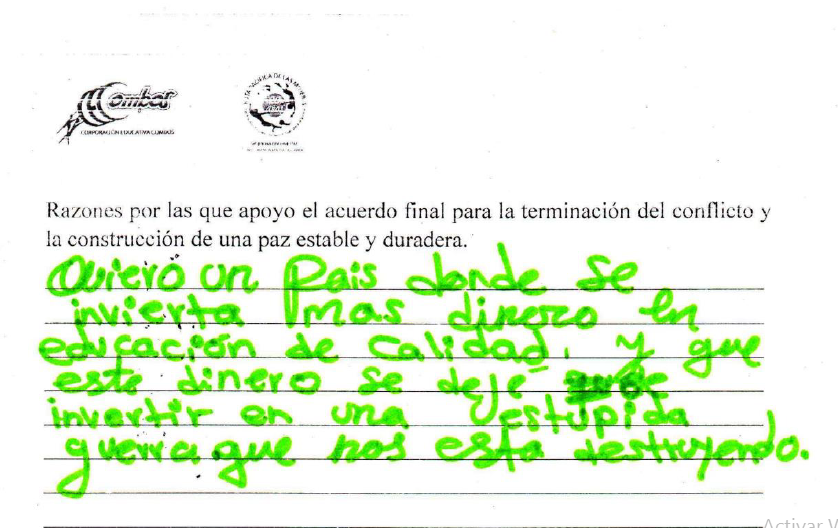 Combos
CORPORACIÓN EDUCATIVA COMBOS
Razones por las que apoyo el acuerdo final para la terminación del conflicto y
la construcción de una paz estable y duradera.
Quiero un Pais donde se
invierta mas dinero en
educación de calidad, y que
este dinero se deje de
invertir en una estupida
guerra que nos esta destruyendo.
Activar